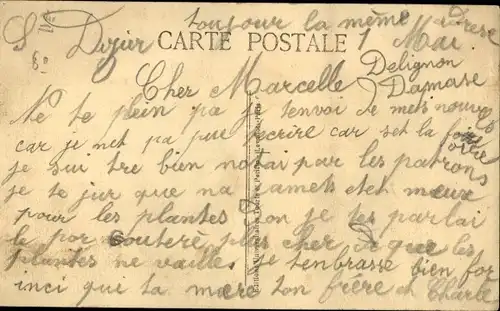 toujour la même adrese
S Dizier
CARTE POSTALE
1 Mai
Delignon
Damase
Cher Marcelle
Ne te plein pa je tenvoi de mets nouvel
car je net pa pue técrire car set la foire
je sui tre bien par les patrons
je te jur que na jamets eten mieux
pour les plantes don je tes parlai
le por couterè plus cher que les
plantes ne vaille. Je tenbrasse bien for
inci que ta mère ton frère et Charle